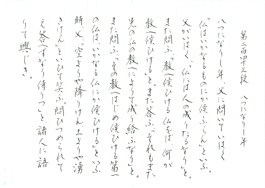 第二百四十三段 八つになりし年
八つになりし年、父に問いていはく、
仏はいかなるものにか候ふらんといふ。
父がいはく、仏には人の成りたるなりと。
また問ふ、人は何として仏には成り候ふやらんと。父また、仏の
教へによりて成るなりと答ふ。また問ふ、
教へ候ひける仏をば、何が
教へ候ひけると。また答ふ、それもまた
先の仏の教へによりて成り給ふなりと。
また問ふ、その教へはじめ候ひける第一
の仏は、いかなる仏にか候ひけるといふ
時、父、空よりや降りけん、土よりや湧
きけんといひて笑ふ。問ひつめられて
え答へずなり侍りつと、諸人に語
りて興じき。